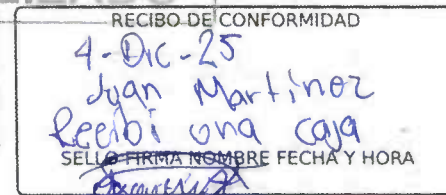 RECIBO DE CONFORMIDAD
4-Dic-25
Juan Martinez
Recibi una caja
SELLO FIRMA NOMBRE FECHA Y HORA